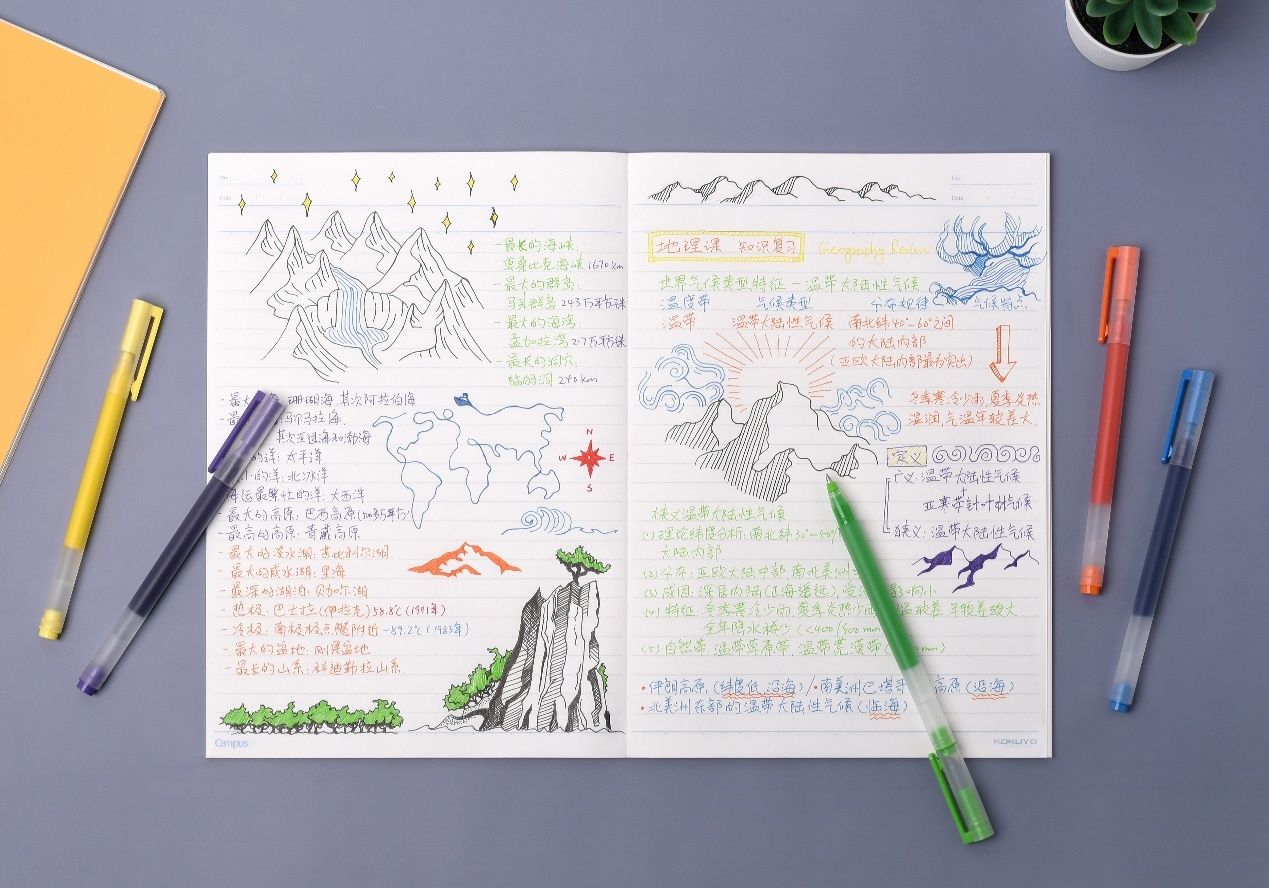 No.
Date
-最长的海峡:
莫桑比克海峡 1670km
-最大的群岛:
马来群岛 243万平方km
-最大的海湾:
孟加拉湾 217万平方km
-最长的洞穴:
猛犸洞 240km
-最大 珊瑚海,其次阿拉伯海
-最 马尔马拉海,
其次亚速海和渤海
的洋:太平洋
的洋:北冰洋
海运最繁忙的洋:大西洋
-最大的高原:巴西高原(500多万平方
-最高的高原:青藏高原
-最大的淡水湖:苏必利尔湖
-最大的咸水湖:里海
-最深的湖泊:贝加尔湖
-热极:巴士拉(伊拉克)58.8℃(1921年)
-冷极:南极极点附近-89.2℃(1983年)
-最大的盆地:刚果盆地
-最长的山系:科迪勒拉山系
N
W E
S
Campus
No.
Date
地理课 知识复习 Geography Review
世界气候类型特征-温带大陆性气候
温度带 气候类型 分布规律 气候特点
温带 温带大陆性气候 南北纬40°-60°之间
的大陆内部
(亚欧大陆内部最为突出)
冬季寒冷少雨,夏季炎热
温润,气温年较差大.
定义
广义:温带大陆性气候
+
亚寒带针叶林气候
狭义:温带大陆性气候
狭义温带大陆性气候
(1)理论纬度分析:南北纬30°-50°
大陆内部
(2)分布:亚欧大陆中部,南北美洲
(3)成因:深居内陆(距海遥远),受 影响小
(4)特征:冬季寒冷少雨,夏季炎热少雨 温较差 年较差较大.
全年降水稀少(<400/500mm
(5)自然带:温带草原带,温带荒漠带( mm)
•伊朗高原(纬度低,沿海)/•南美洲巴塔哥 高原(沿海)
•北美洲东部的温带大陆性气候(临海)
KOKUYO